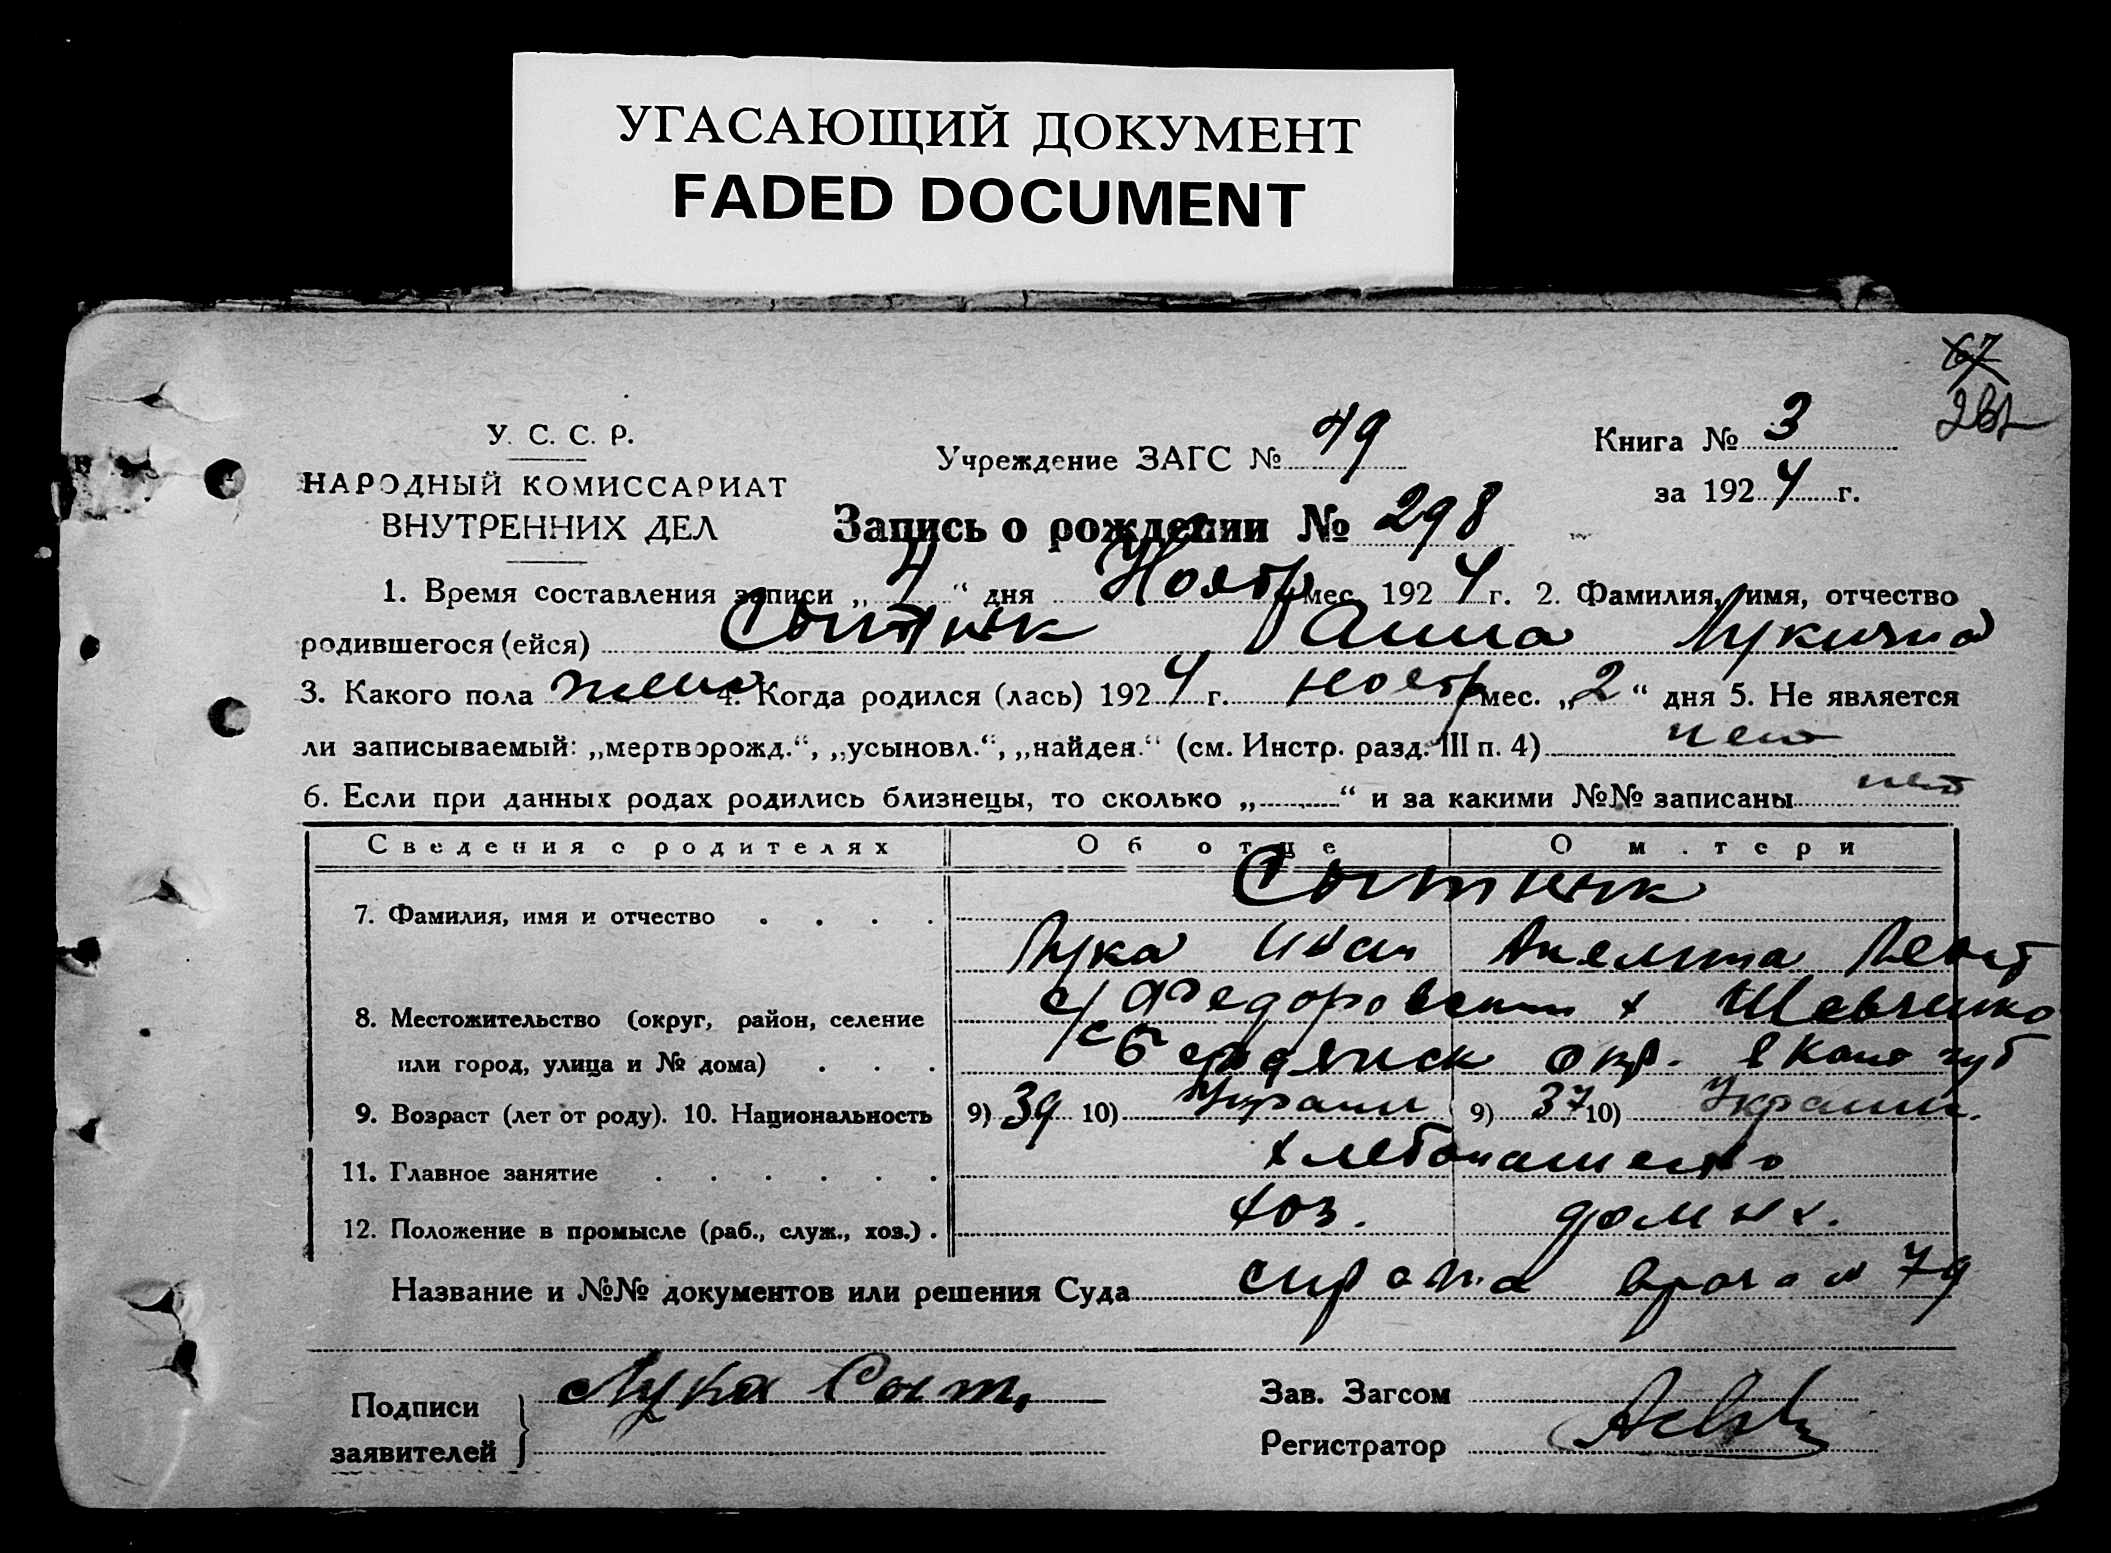 УГАСАЮЩИЙ ДОКУМЕНТ
FADED DOCUMENT
67
У. С. С. Р.
НАРОДНЫЙ КОМИССАРИАТ
ВНУТРЕННИХ ДЕЛ
Учреждение ЗАГС № 49
Книга № 3
за 1924 г.
Запись о рождении № 298
1. Время составления записи „ 4 “ дня Ноябр мес. 1924 г. 2. Фамилия, имя, отчество
родившегося (ейся) Сытник Анна Лукична
3. Какого пола женс 4. Когда родился (лась) 1924 г. ноябр мес. „ 2 “ дня 5. Не является
ли записываемый: „мертворожд.“, „усыновл.“, „найден.“ (см. Инстр. разд. III п. 4) нет
6. Если при данных родах родились близнецы, то сколько „........“ и за какими №№ записаны нет
Сведения о родителях Об отце О м.тери
7. Фамилия, имя и отчество . . . . Сытник
Лука Иван Акелина Леонт
8. Местожительство (округ, район, селение с/ Федоровский х Шевченко
или город, улица и № дома) . . . с/с Бердянск окр.
9. Возраст (лет от роду). 10. Национальность 9) 39 10) Украин 9) 37 10) Украин.
11. Главное занятие . . . . . . хлебопашество
12. Положение в промысле (раб., служ., хоз.) . хоз. домих.
Название и №№ документов или решения Суда справка врача № 79
Подписи заявителей } Лука Сыт,
Зав. Загсом
Регистратор